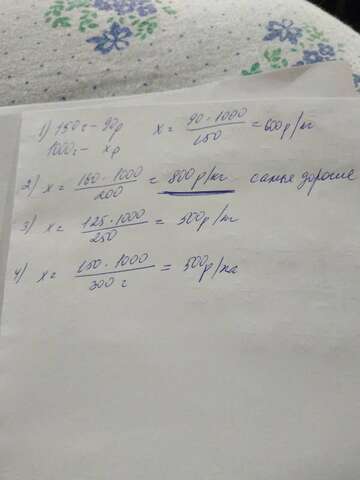 1) 150г - 90р x = 90·1000 / 150 = 600р/кг
1000г - xр
2) x = 160·1000 / 200 = 800р/кг самые дорогие
3) x = 125·1000 / 250 = 500р/кг
4) x = 150·1000 / 300г = 500р/кг